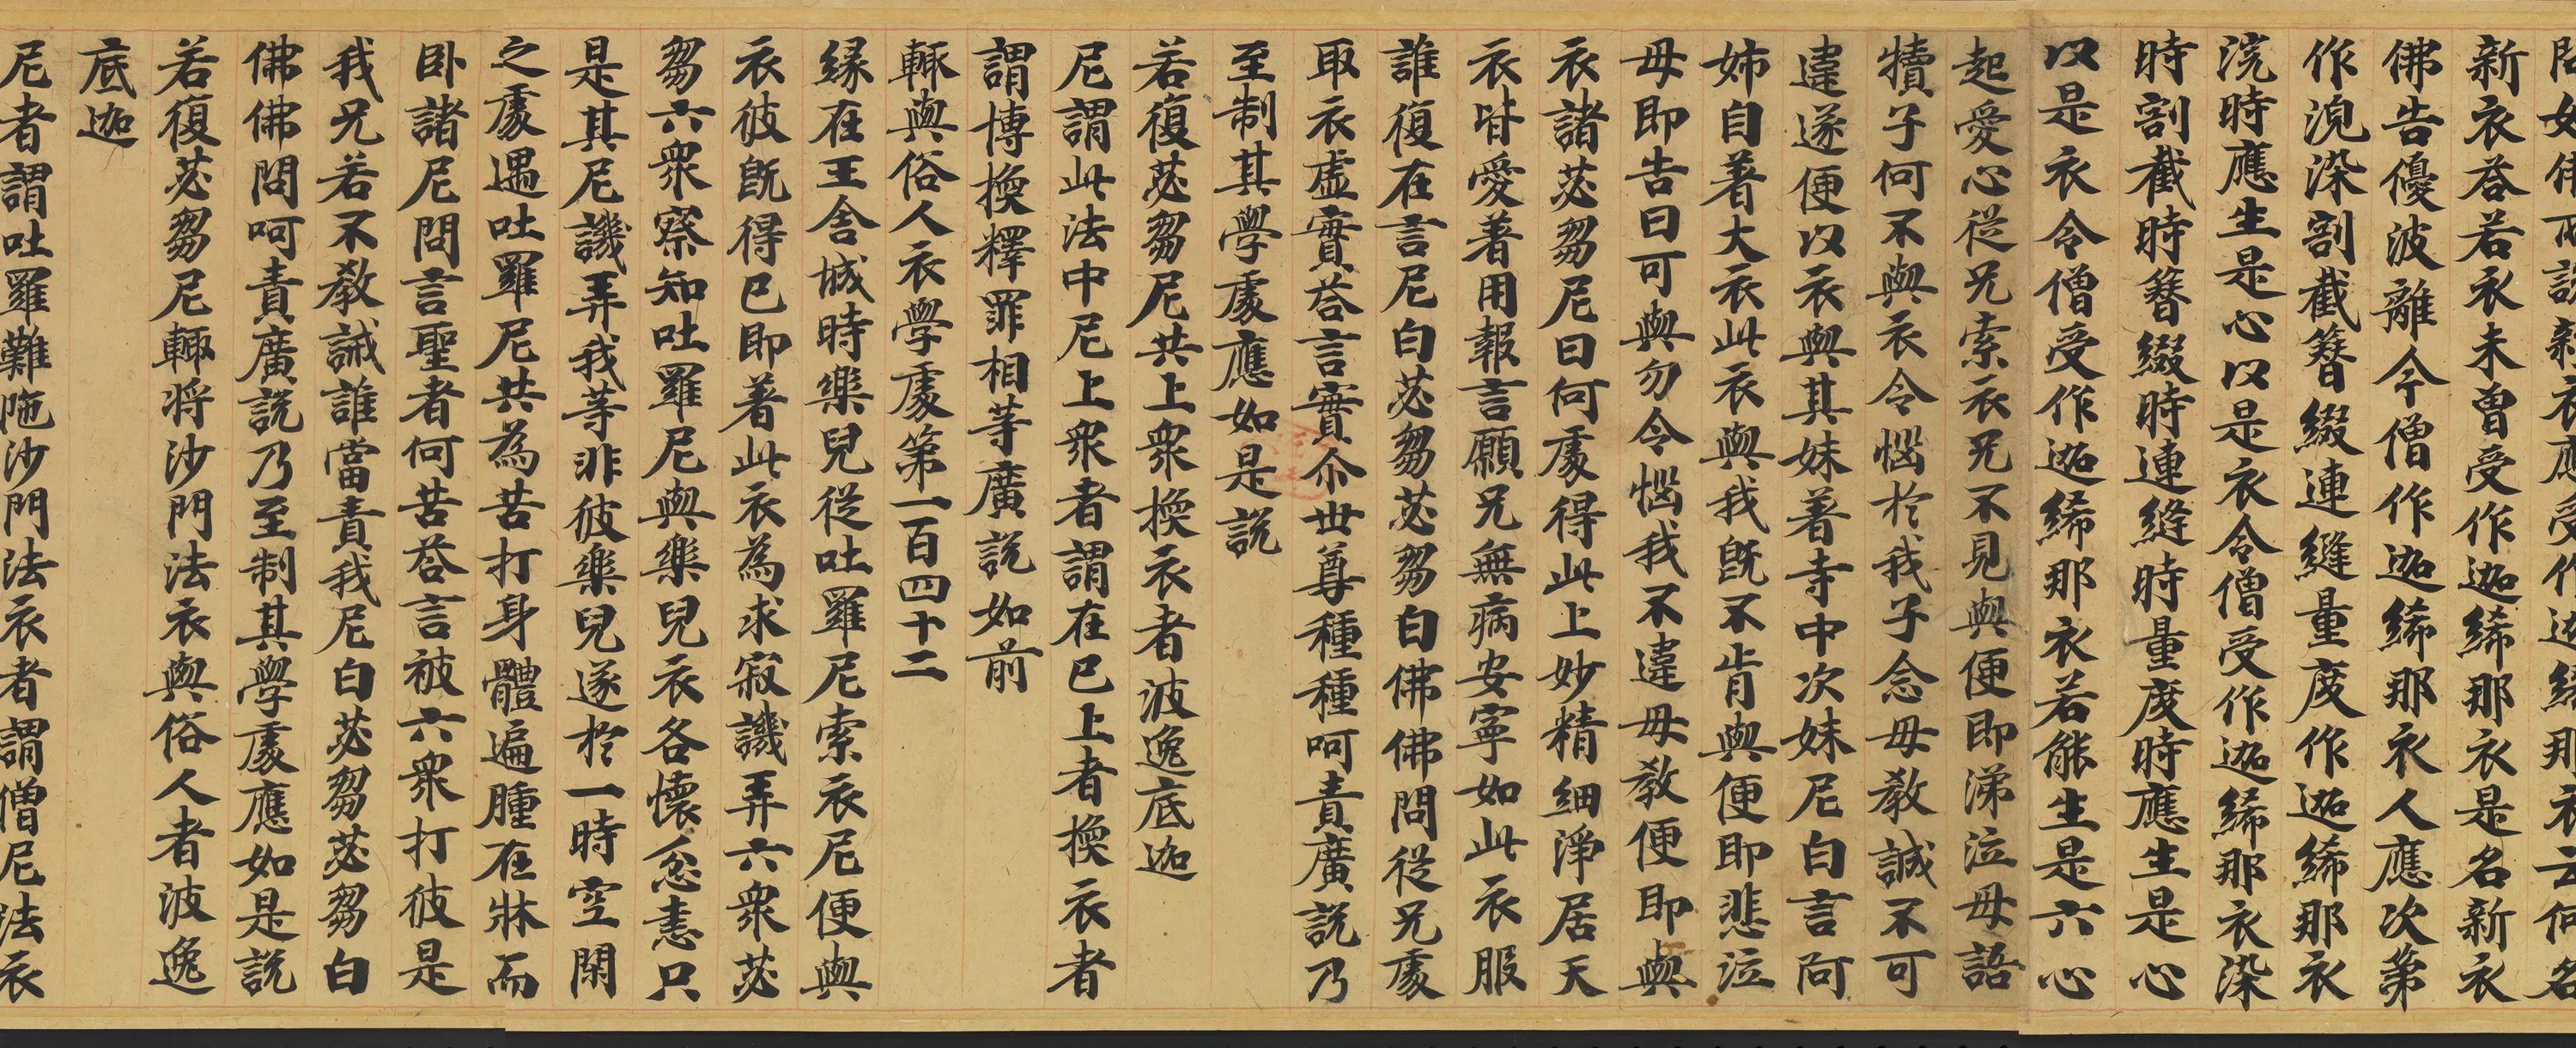 新衣荅若衣未曾受作迦絺那衣是名新衣
佛告優波離今僧作迦絺那衣人應次第
作浣染割截簪綴連縫量度作迦絺那衣
浣時應生是心以是衣令僧受作迦絺那衣染
時割截時簪綴時連縫時量度時應生是心
以是衣令僧受作迦絺那衣若能生是六心
起愛心從兄索衣兄不見與便即涕泣母語
犢子何不與衣令惱於我子念母教誡不可
違遂便以衣與其妹著寺中次妹尼白言何
姉自著大衣此衣與我既不肯與便即悲泣
母即告曰可與勿令惱我不違母教便即與
衣諸苾芻尼曰何處得此上妙精細淨居天
衣皆愛著用報言願兄無病安寧如此衣服
誰復在言尼白苾芻苾芻白佛佛問從兄處
取衣虛實荅言實尒世尊種種呵責廣說乃
至制其學處應如是說
若復苾芻尼共上衆換衣者波逸底迦
尼謂此法中尼上衆者謂在已上者換衣者
謂博換釋罪相等廣說如前
輙與俗人衣學處第一百四十二
緣在王舍城時樂兒從吐羅尼索衣尼便與
衣彼既得已即著此衣為求寂譏弄六衆苾
芻六衆察知吐羅尼與樂兒衣各懷忿恚只
是其尼譏弄我等非彼樂兒遂於一時空閑
之處遇吐羅尼共為苦打身體遍腫在牀而
卧諸尼問言聖者何苦荅言被六衆打彼是
我兄若不教誡誰當責我尼白苾芻苾芻白
佛佛問呵責廣說乃至制其學處應如是說
若復苾芻尼輙將沙門法衣與俗人者波逸
底迦
尼者謂吐羅難陁沙門法衣者謂僧尼法衣